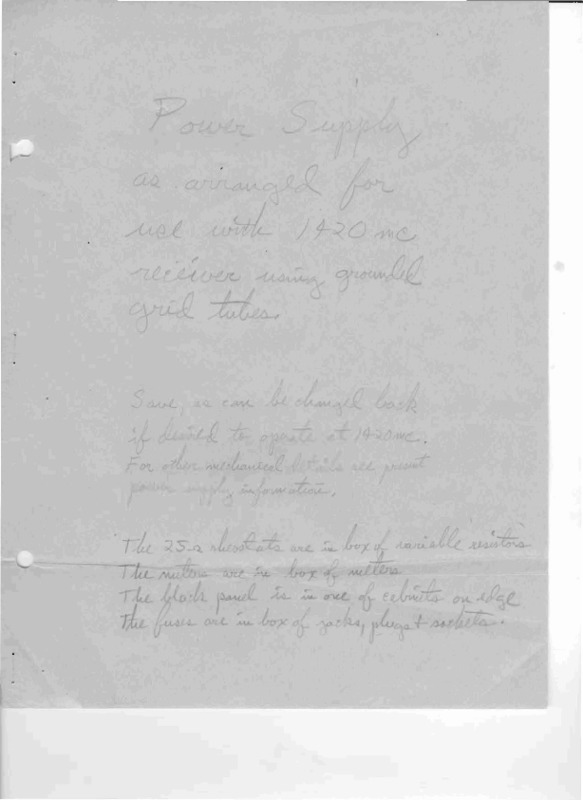 Power Supply
as arranged for
use with 1420 mc
receiver using grounded
grid tubes.
Save, as can be changed back
if desired to operate at 1420 mc.
For other mechanical details see present
power supply information.
The 25-Ω rheostats are in box of variable resistors
The meters are in box of meters
The black panel is in one of cabinets on edge
The fuses are in box of jacks, plugs + sockets.